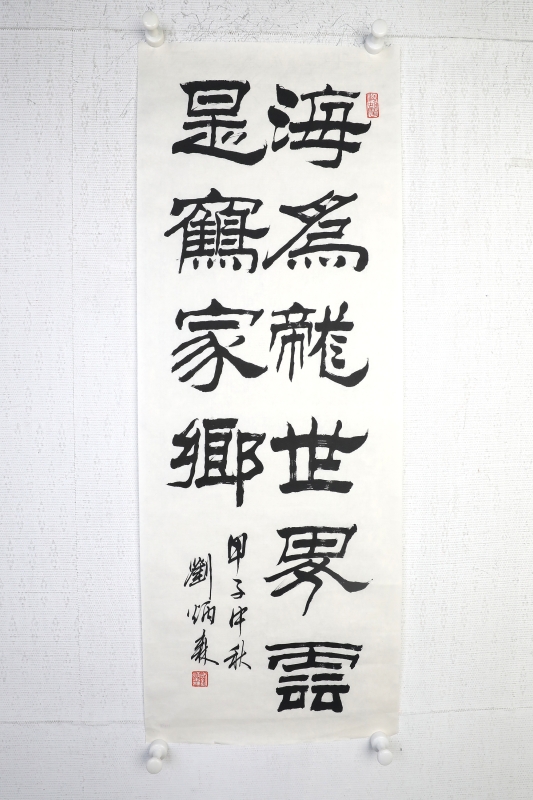 海為龍世界雲
是鶴家鄉
甲子中秋
劉炳森